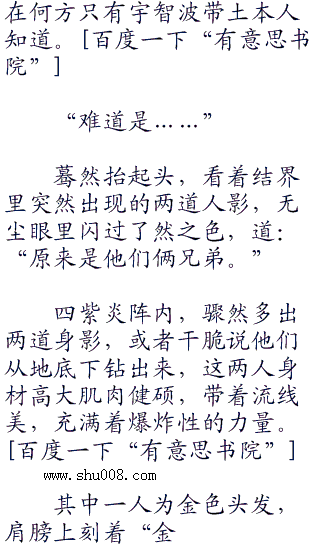 在何方只有宇智波带土本人
知道。[百度一下“有意思书
院”]
“难道是……”
蓦然抬起头，看着结界
里突然出现的两道人影，无
尘眼里闪过了然之色，道：
“原来是他们俩兄弟。”
四紫炎阵内，骤然多出
两道身影，或者干脆说他们
从地底下钻出来，这两人身
材高大肌肉健硕，带着流线
美，充满着爆炸性的力量。
[百度一下“有意思书院”]
www.shu008.com
其中一人为金色头发，
肩膀上刻着“金